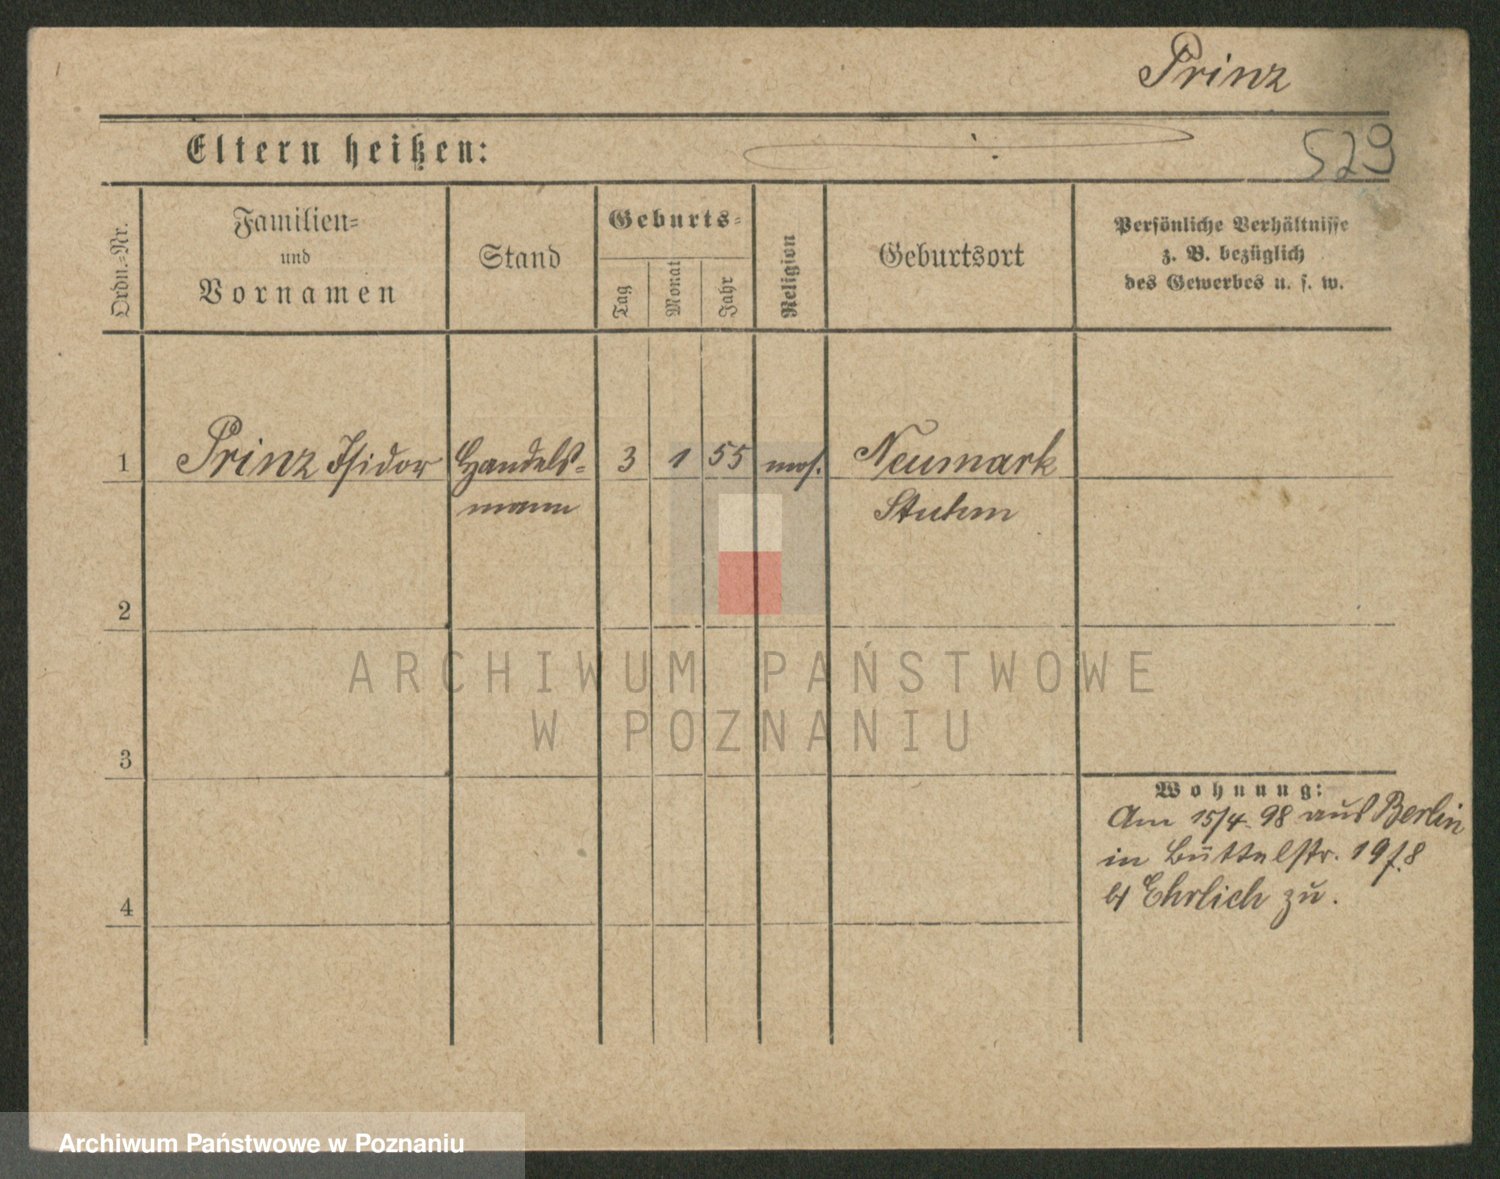 Prinz
Eltern heißen:
529
Ordn.-Nr.
Familien-
und
Vornamen
Stand
Geburts-
Tag
Monat
Jahr
Religion
Geburtsort
Persönliche Verhältnisse
z. B. bezüglich
des Gewerbes u. s. w.
1 Prinz Isidor Handels- 3 1 55 mos. Neumark
mann Stuhm
2
ARCHIWUM PAŃSTWOWE
W POZNANIU
3
Wohnung:
Am 15/4. 98 aus Berlin
in Büttelstr. 19/8
b/ Ehrlich zu.
4
Archiwum Państwowe w Poznaniu